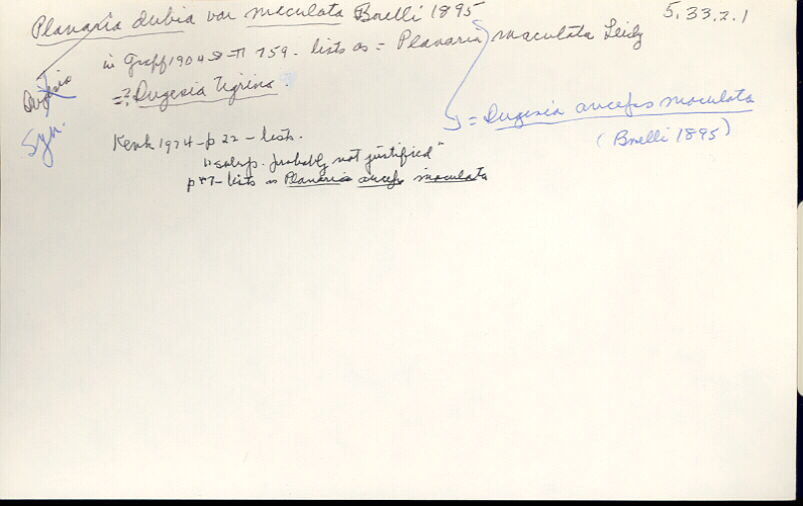 Planaria dubia var maculata Borelli 1895
5.33.2.1
in Graff 1904 → 17 759. lists as = Planaria maculata Leidy
=? Dugesia tigrina.
Dugesia
Syn.
= Dugesia anceps maculata
(Borelli 1895)
Kenk 1974 - p 22 - lists.
"subsp. probably not justified"
lists as Planaria anceps maculata